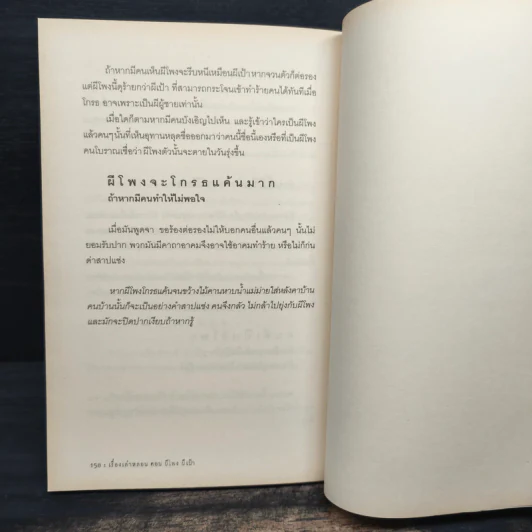 ถ้าหากมีคนเห็นผีโพงจะรีบหนีเหมือนผีเป้า หากจวนตัวก็ต่อรอง
แต่ผีโพงนี้ดุร้ายกว่าผีเป้า ที่สามารถกระโจนเข้าทำร้ายคนได้ทันทีเมื่อ
โกรธ อาจเพราะเป็นผีผู้ชายเท่านั้น
เมื่อใดก็ตามหากมีคนบังเอิญไปเห็น และรู้เข้าว่าใครเป็นผีโพง
แล้วคนๆนั้นที่เห็นอุทานหลุดชื่อออกมาว่าคนนี้ชื่อนี้เองหรือที่เป็นผีโพง
คนโบราณเชื่อว่า ผีโพงตัวนั้นจะตายในวันรุ่งขึ้น
ผีโพงจะโกรธแค้นมาก
ถ้าหากมีคนทำให้ไม่พอใจ
เมื่อมันพูดจา ขอร้องต่อรองไม่ให้บอกคนอื่นแล้วคนๆ นั้นไม่
ยอมรับปาก พวกมันมีคาถาอาคมจึงอาจใช้อาคมทำร้าย หรือไม่ก็ก่น
ด่าสาปแช่ง
หากผีโพงโกรธแค้นจนขว้างไม้คานหาบน้ำแม่ม่ายใส่หลังคาบ้าน
คนบ้านนั้นก็จะเป็นอย่างคำสาปแช่ง คนจึงกลัว ไม่กล้าไปยุ่งกับผีโพง
และมักจะปิดปากเงียบถ้าหากรู้
158 : เรื่องเล่าสยอง ตอน ผีโพง ผีเป้า